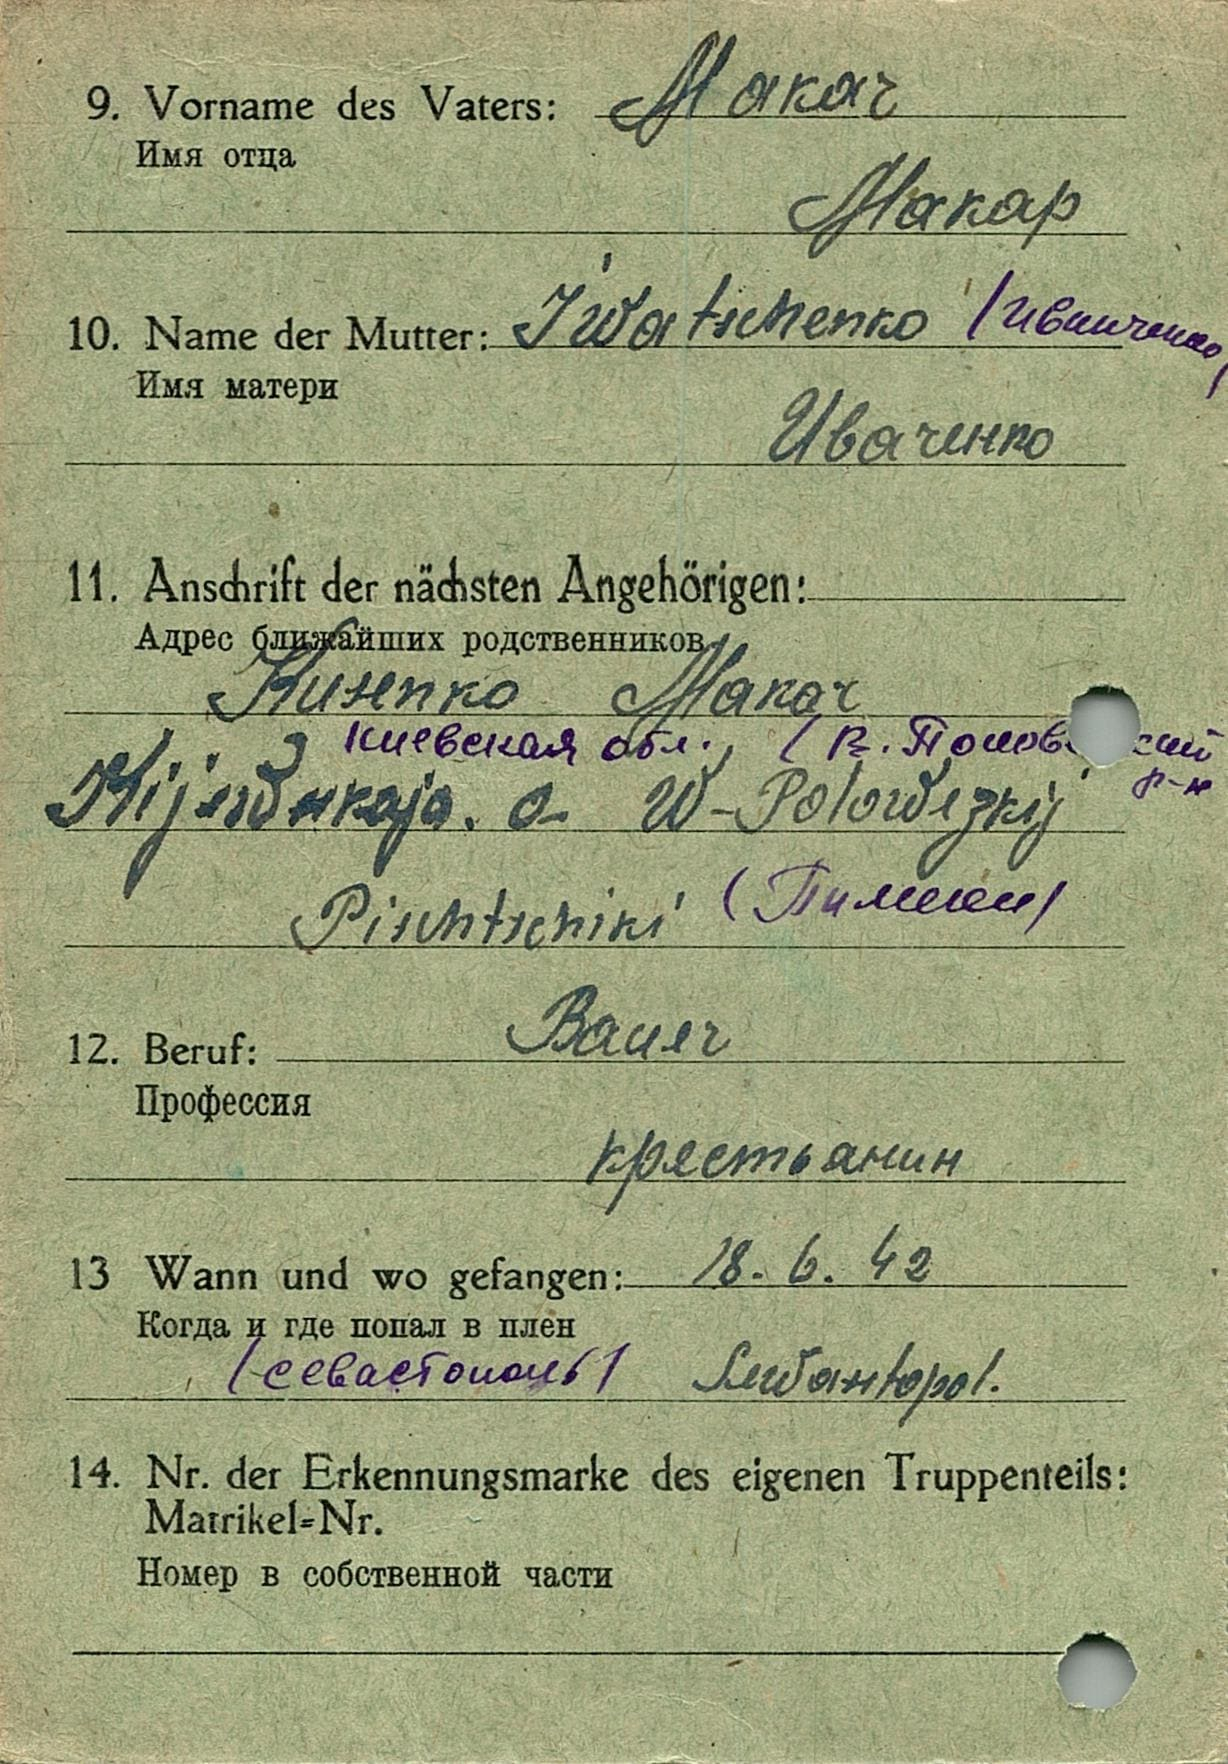 9. Vorname des Vaters: Макаr
Имя отца
Макар
10. Name der Mutter: Iwatschenko (Иванченко)
Имя матери
Иваченко
11. Anschrift der nächsten Angehörigen:
Адрес ближайших родственников
Makar
Киевская обл., (В.
р-н
W-Polowezkij
Pischtschiki
12. Beruf: Bauer
Профессия
крестьянин
13 Wann und wo gefangen: 18. 6. 42
Когда и где попал в плен
(Севастополь)
14. Nr. der Erkennungsmarke des eigenen Truppenteils:
Matrikel=Nr.
Номер в собственной части